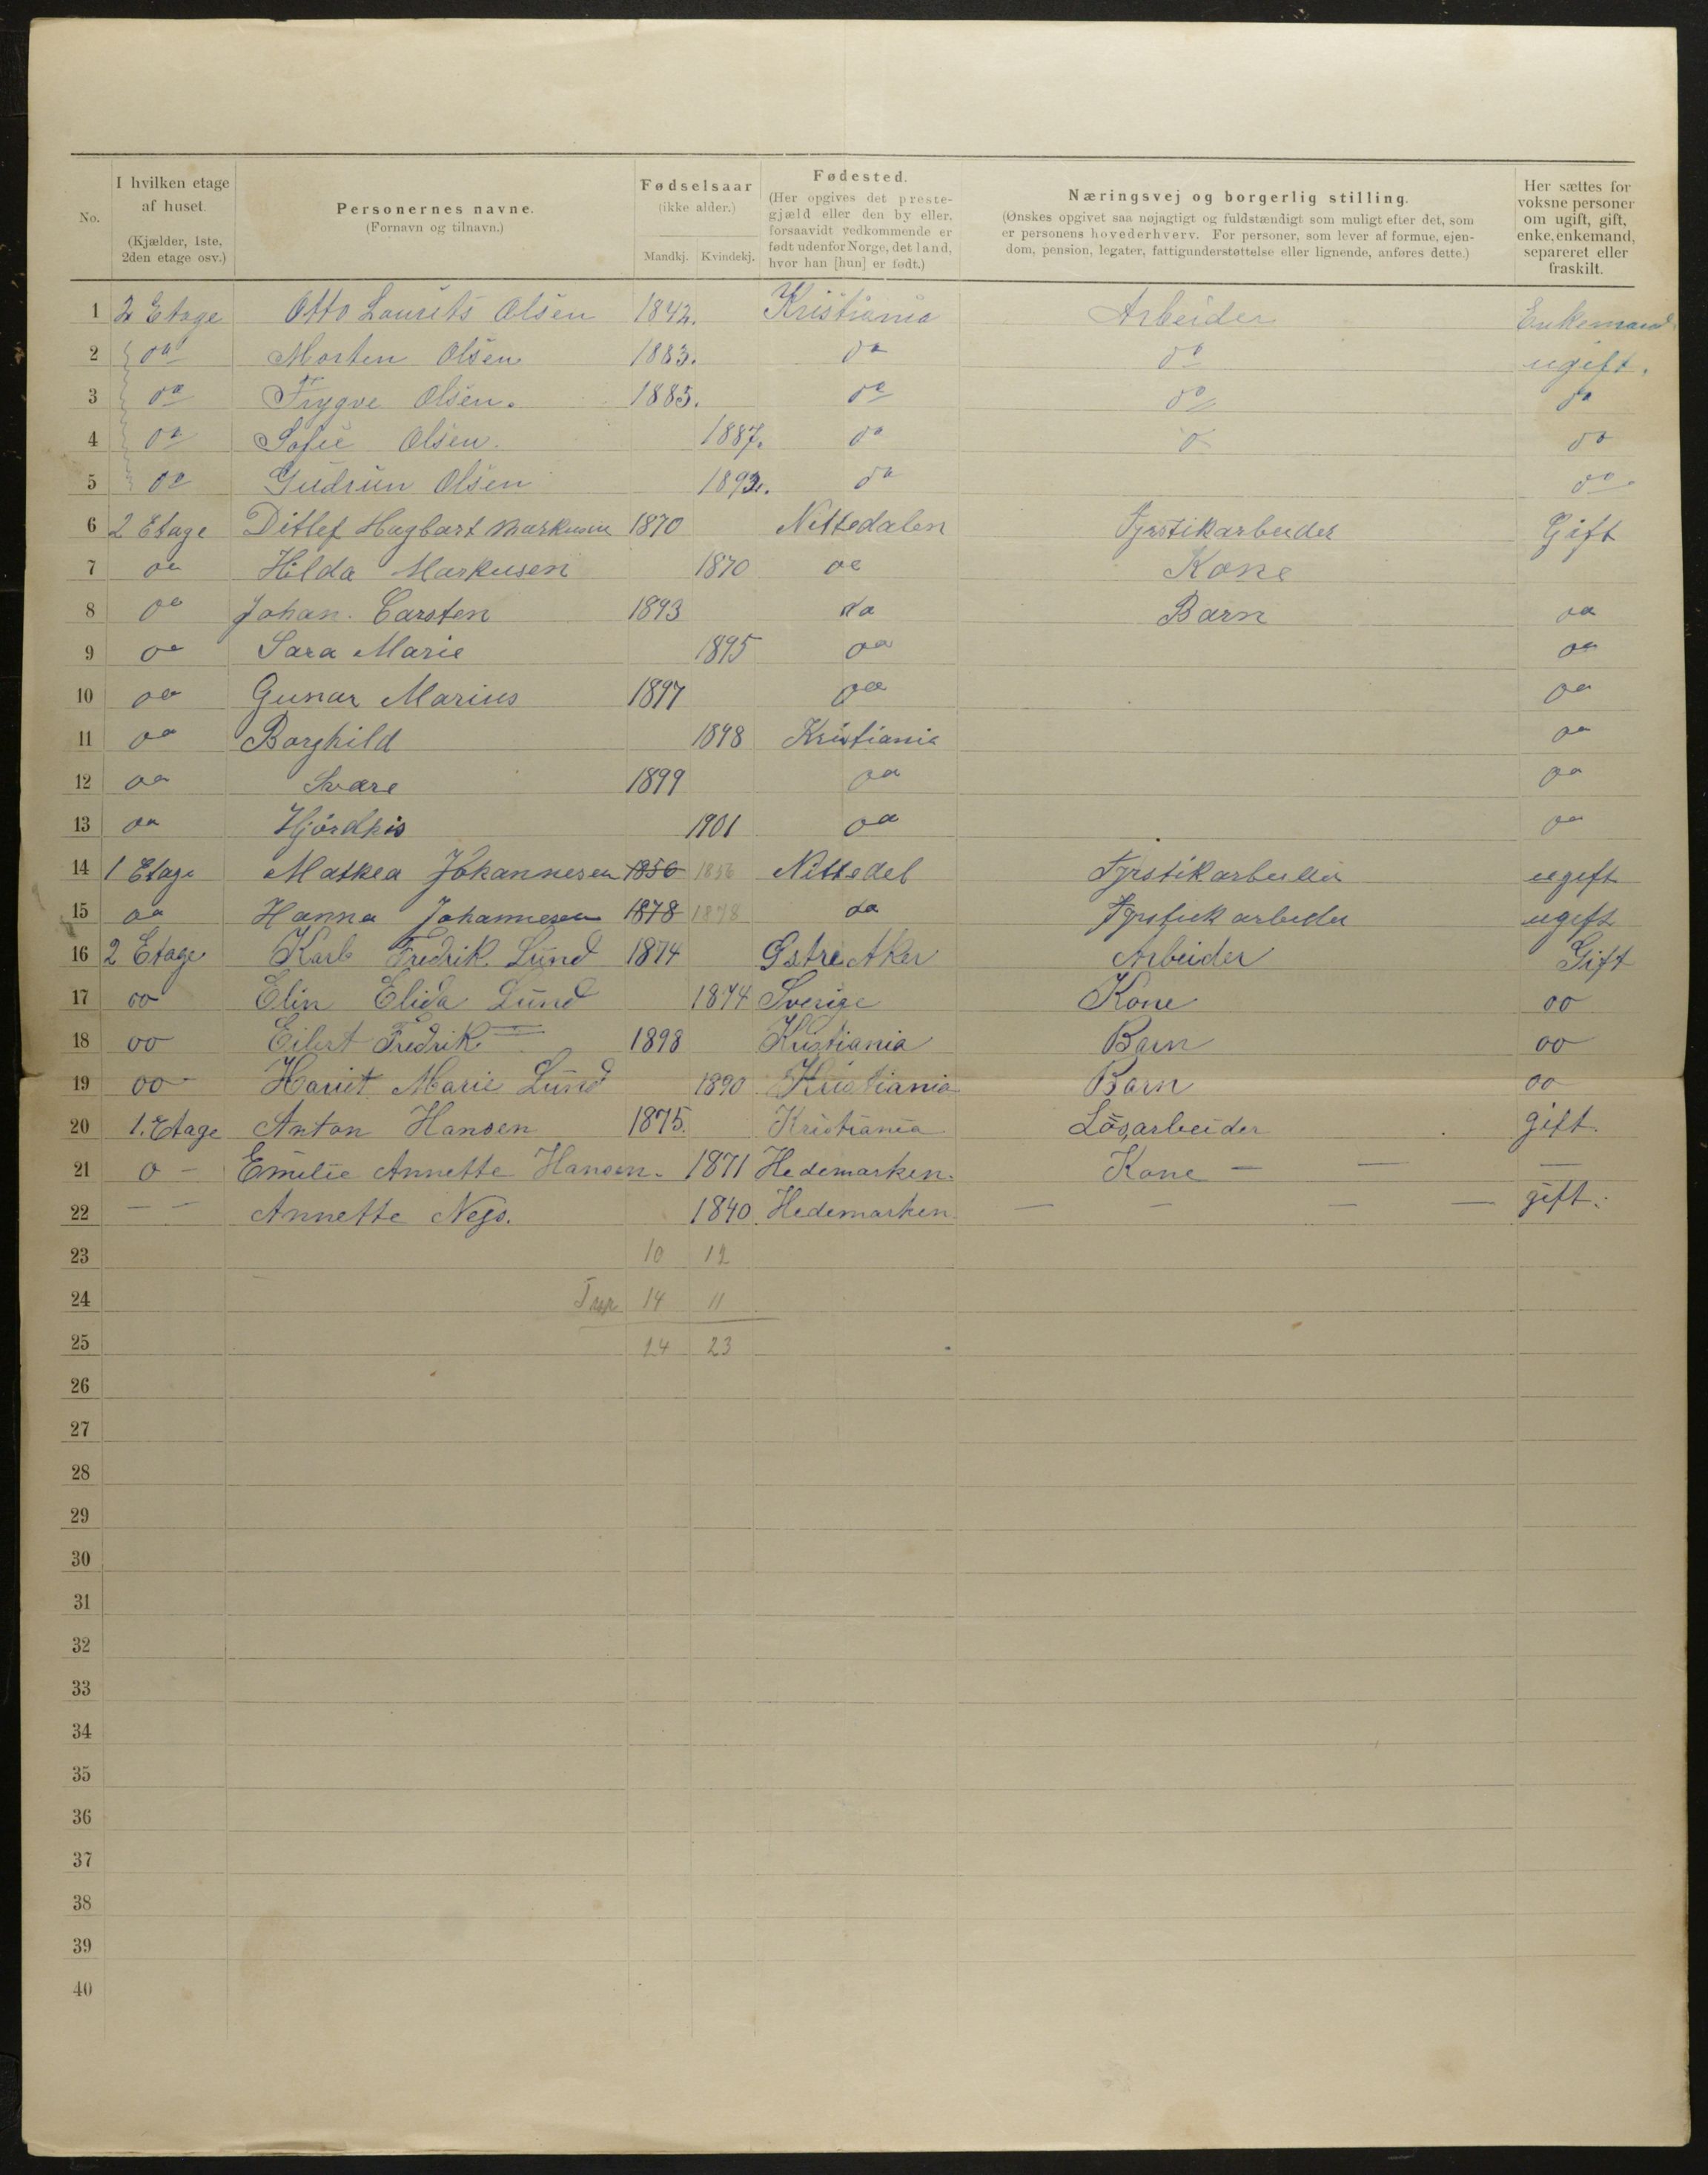 No.
I hvilken etage af huset.
(Kjælder, 1ste, 2den etage osv.)
Personernes navne.
(Fornavn og tilnavn.)
Fødselsaar
(ikke alder.)
Mandkj. Kvindekj.
Fødested.
(Her opgives det prestegjæld eller den by eller, forsaavidt vedkommende er født udenfor Norge, det land, hvor han [hun] er født.)
Næringsvej og borgerlig stilling.
(Ønskes opgivet saa nøjagtigt og fuldstændigt som muligt efter det, som er personens hovederhverv. For personer, som lever af formue, ejendom, pension, legater, fattigunderstøttelse eller lignende, anføres dette.)
Her sættes for voksne personer om ugift, gift, enke, enkemand, separeret eller fraskilt.
1 2 Etage Otto Laurits Olsen 1842. Kristiania Arbeider Enkemand
2 do Morten Olsen 1883. do do ugift.
3 do Trygve Olsen. 1885. do do do
4 do Sofie Olsen. 1887. do do
5 do Gudrun Olsen do do
6 2 Etage Ditlef Hagbart Markusen 1870 Nittedalen Fyrstikarbeider Gift
7 oa Hilda Markusen 1870 oa Kone
8 oa Johan. Carsten 1893 da Barn oa
9 oa Sara Marie 1895 oa oa
10 oa Gunar Marius 1897 oa oa
11 oa Borghild 1898 Kristiania oa
12 oa Svære 1899 oa oa
13 oa Hjördhis 1901 oa oa
14 1 Etage Mathea Johannesen 1856 1856 Nittedel Fyrstikarbeider ugift
15 oa Hanna Johannesen 1878 1878 da Fyrstick arbeider ugift
16 2 Etage Karl Fredrik Lund 1874 Østre Aker Arbeider Gift
17 oo Elin Elida Lund 1874 Sverige Kone oo
18 oo Eilert Fredrik — 1898 Kristiania Barn oo
19 oo Hariet Marie Lund 1890 Kristiania Barn oo
20 1. Etage Anton Hansen 1875. Kristiania Lösarbeider gift.
21 o - Emilie Annette Hansen. 1871 Hedemarken. Kone — — —
22 — — Annette Negs. 1840. Hedemarken. — — — — gift.
23 10 12
24 14 11
25 24 23
26
27
28
29
30
31
32
33
34
35
36
37
38
39
40